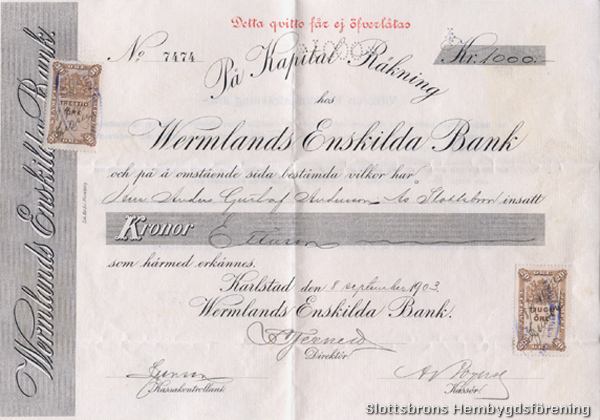 Detta qvitto får ej öfverlåtas
No 7474
Kr. 1000.
På Kapital Räkning
hos
Wermlands Enskilda Bank
och på å omstående sida bestämda vilkor har
Anders Gustaf Andersson Slottsbron insatt
Kronor Ettusen
som härmed erkännes.
Karlstad den 8 september 1903.
Wermlands Enskilda Bank.
Direktör
Kassakontrollant
Kassör
Wermlands Enskilda Bank
TRETTIO
ÖRE
TJUGO
ÖRE
Slottsbrons Hembygdsförening